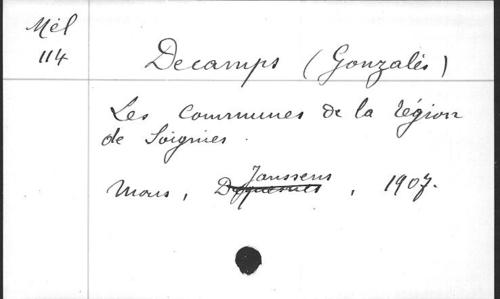 Mél
114
Decamps (Gonzalès)
Les Communes de la région
de Soignies.
Janssens
Mons, Dequesnes, 1907.